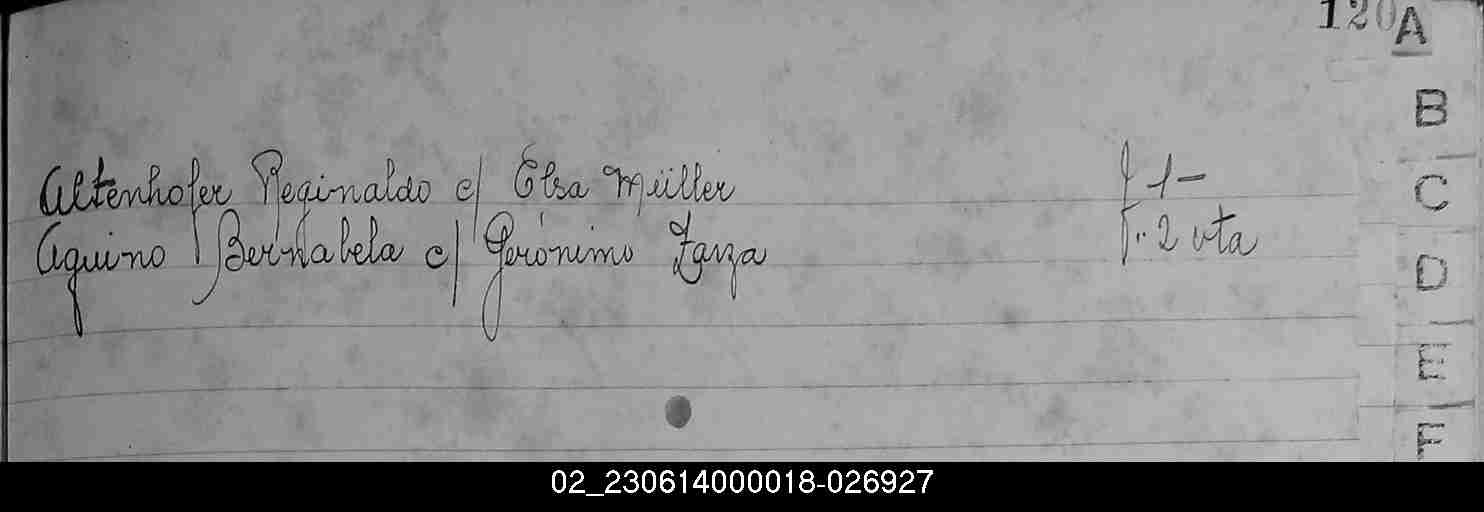 120
A
B
C
D
E
F
Altenhofer Reginaldo c/ Elsa Müller f 1-
Aquino Bernabela c/ Gerónimo Zarza F.. 2 vta
02_230614000018-026927